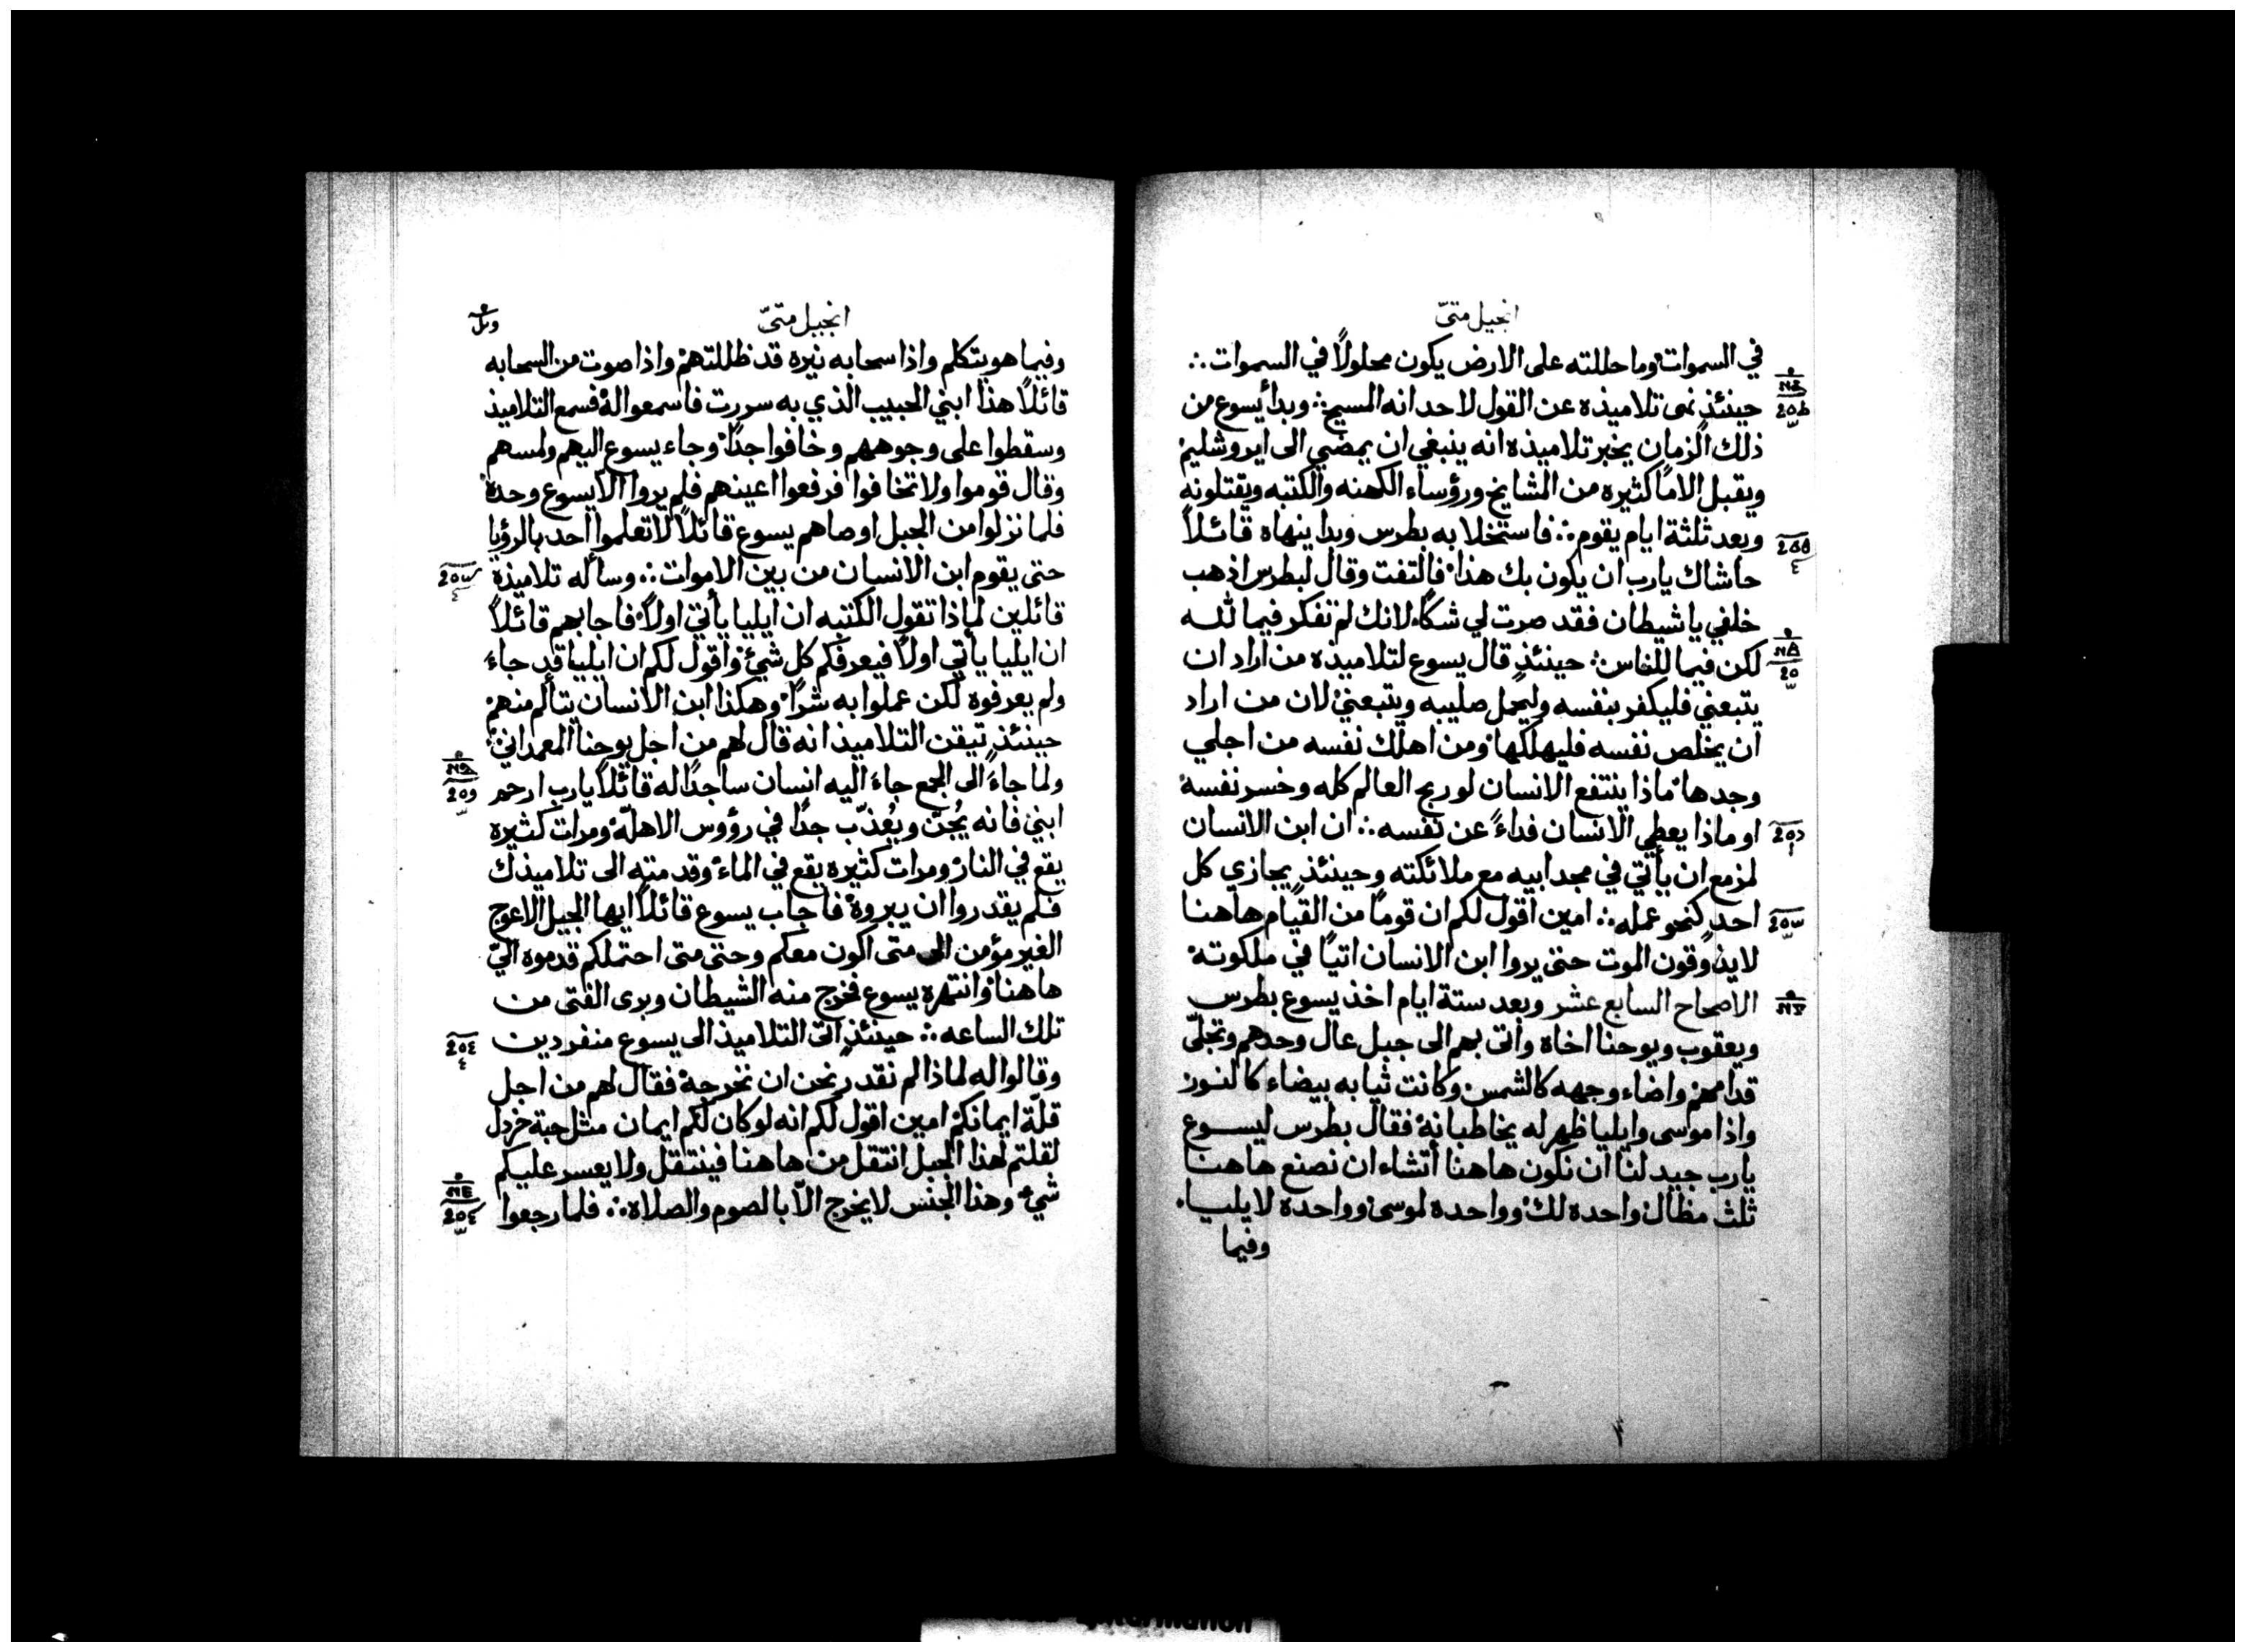 انجيل متىّ
في السموات وما حللته على الارض يكون محلولاً في السموات ∴
حينئذٍ نهى تلاميذه عن القول لاحد انه المسيح ∴ وبدأ يسوع من
ذلك الزمان يخبر تلاميذه انه ينبغي ان يمضي الى ايروشليم
ويقبل الاماً كثيره من المشايخ ورؤساء الكهنه والكتبه ويقتلونه
وبعد ثلثة ايام يقوم ∴ فاستخلا به بطرس وبدا ينهاه قائلاً
حاشاك يارب ان يكون بك هذا فالتفت وقال لبطرس اذهب
خلفي يا شيطان فقد صرت لي شكاً لانك لم تفكر فيما لله
لكن فيما للناس ∴ حينئذٍ قال يسوع لتلاميذه من اراد ان
يتبعني فليكفر بنفسه وليحمل صليبه ويتبعني لان من اراد
ان يخلص نفسه فليهلكها ومن اهلك نفسه من اجلي
وجدها ماذا ينتفع الانسان لو ربح العالم كله وخسر نفسه
او ماذا يعطي الانسان فداءً عن نفسه ∴ ان ابن الانسان
لمزمع ان يأتي في مجد ابيه مع ملائكته وحينئذٍ يجازي كل
احدٍ كنحو عمله ∴ امين اقول لكم ان قوماً من القيام هاهنا
لا يذوقون الموت حتى يروا ابن الانسان اتياً في ملكوته
الاصحاح السابع عشر وبعد ستة ايام اخذ يسوع بطرس
ويعقوب ويوحنا اخاه واتى بهم الى جبل عال وحدهم وتجلّى
قدامهم واضاء وجهه كالشمس وكانت ثيابه بيضاء كالنور
واذا موسى وايليا ظهر له يخاطبانه فقال بطرس ليسوع
يارب جيد لنا ان نكون هاهنا أتشاء ان نصنع هاهنا
ثلث مظال واحده لك وواحده لموسى وواحدة لايليا
وفيما
انجيل متىّ
وفيما هو يتكلم واذا سحابه نيره قد ظللتهم واذا صوت من السحابه
قائلاً هذا ابني الحبيب الذي به سررت فاسمعوا له فسمع التلاميذ
وسقطوا على وجوههم وخافوا جداً وجاء يسوع اليهم ولمسهم
وقال قوموا ولا تخافوا فرفعوا اعينهم فلم يروا الا يسوع وحده
فلما نزلوا من الجبل اوصاهم يسوع قائلاً لا تعلموا احد بالرؤيا
حتى يقوم ابن الانسان من بين الاموات ∴ وسأله تلاميذه
قائلين لماذا تقول الكتبه ان ايليا يأتي اولاً فاجابهم قائلاً
ان ايليا يأتي اولاً فيعرفكم كل شيء واقول لكم ان ايليا قد جاء
ولم يعرفوه لكن عملوا به شراً وهكذا ابن الانسان يتألم منهم
حينئذٍ تيقن التلاميذ انه قال لهم من اجل يوحنا المعمداني
ولما جاءَ الى الجمع جاءَ اليه انسان ساجداً له قائلاً يارب ارحم
ابني فانه يُجنّ ويُعذّب جداً في رؤوس الاهلّه ومرات كثيره
يقع في النار ومرات كثيره يقع في الماء وقدمته الى تلاميذك
فلم يقدروا ان يبروه فاجاب يسوع قائلاً ايها الجيل الاعوج
الغير مؤمن الى متى اكون معكم وحتى متى احتملكم قدموه اليّ
هاهنا وانتهره يسوع فخرج منه الشيطان وبرى الفتى من
تلك الساعه ∴ حينئذٍ اتى التلاميذ الى يسوع منفردين
وقالوا له لماذا لم نقدر نحن ان نخرجه فقال لهم من اجل
قلّة ايمانكم امين اقول لكم انه لو كان لكم ايمان مثل حبة خردل
لقلتم لهذا الجبل انتقل من هاهنا فينتقل ولا يعسر عليكم
شيء وهذا الجنس لا يخرج الاّ بالصوم والصلاة ∴ فلما رجعوا